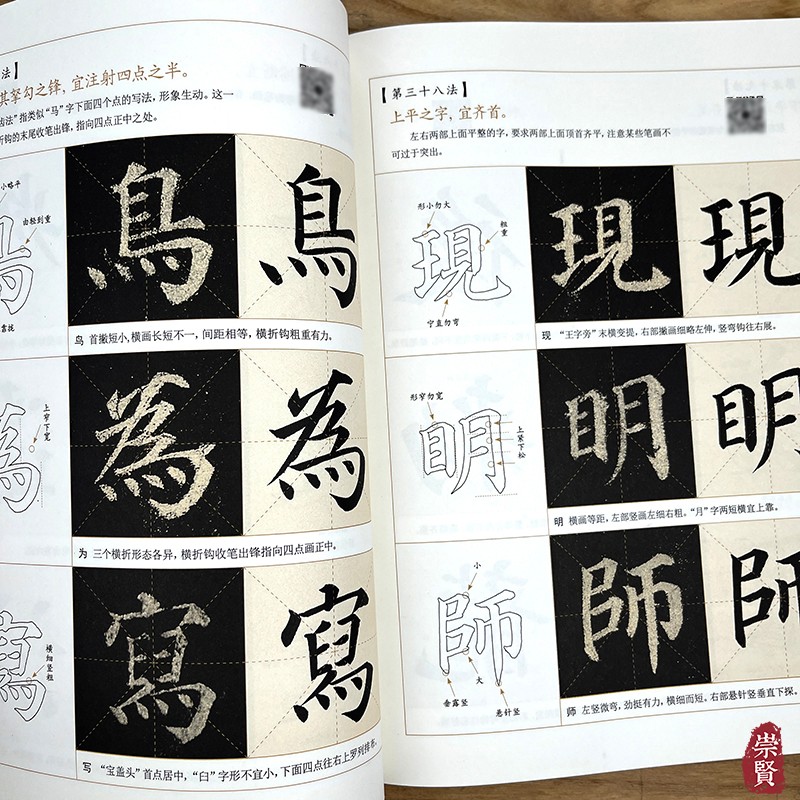 法】
其挐勾之锋，宜注射四点之半。
法”指类似“马”字下面四个点的写法，形象生动。这一
折钩的末尾收笔出锋，指向四点正中之处。
小略平
由轻到重
靠拢
鳥
鳥
鸟 首撇短小，横画长短不一，间距相等，横折钩粗重有力。
上窄下宽
為
為
为 三个横折形态各异，横折钩收笔出锋指向四点画正中。
横细竖粗
寫
寫
写 “宝盖头”首点居中，“臼”字形不宜小，下面四点往右上罗列排布。
【第三十八法】
上平之字，宜齐首。
左右两部上面平整的字，要求两部上面顶首齐平，注意某些笔画不
可过于突出。
形小勿大
粗重
宁直勿弯
現
現
現
现 “王字旁”末横变提，右部撇画细略左伸，竖弯钩往右展。
形窄勿宽
上紧下松
明
明
明
明 横画等距，左部竖画左细右粗。“月”字两短横宜上靠。
小
大
垂露竖
悬针竖
師
師
師
师 左竖微弯，劲挺有力，横细而短。右部悬针竖垂直下探。
崇賢